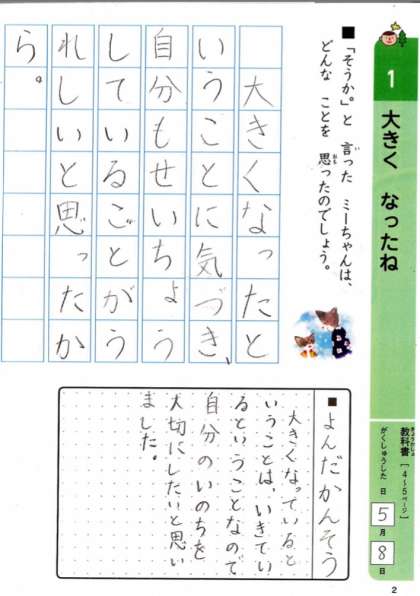 1
大きく なったね
教科書[4〜5ページ]
きょうかしょ
がくしゅうした 日
5月
8日
■「そうか。」と 言った ミーちゃんは、
どんな ことを 思ったのでしょう。
大きくなったと
いうことに気づき、
自分もせいちょう
していることがう
れしいと思ったか
ら。
■よんだかんそう
大きくなっていると
いうことは、いきてい
るということなので
自分のいのちを
大切にしたいと思い
ました。
2